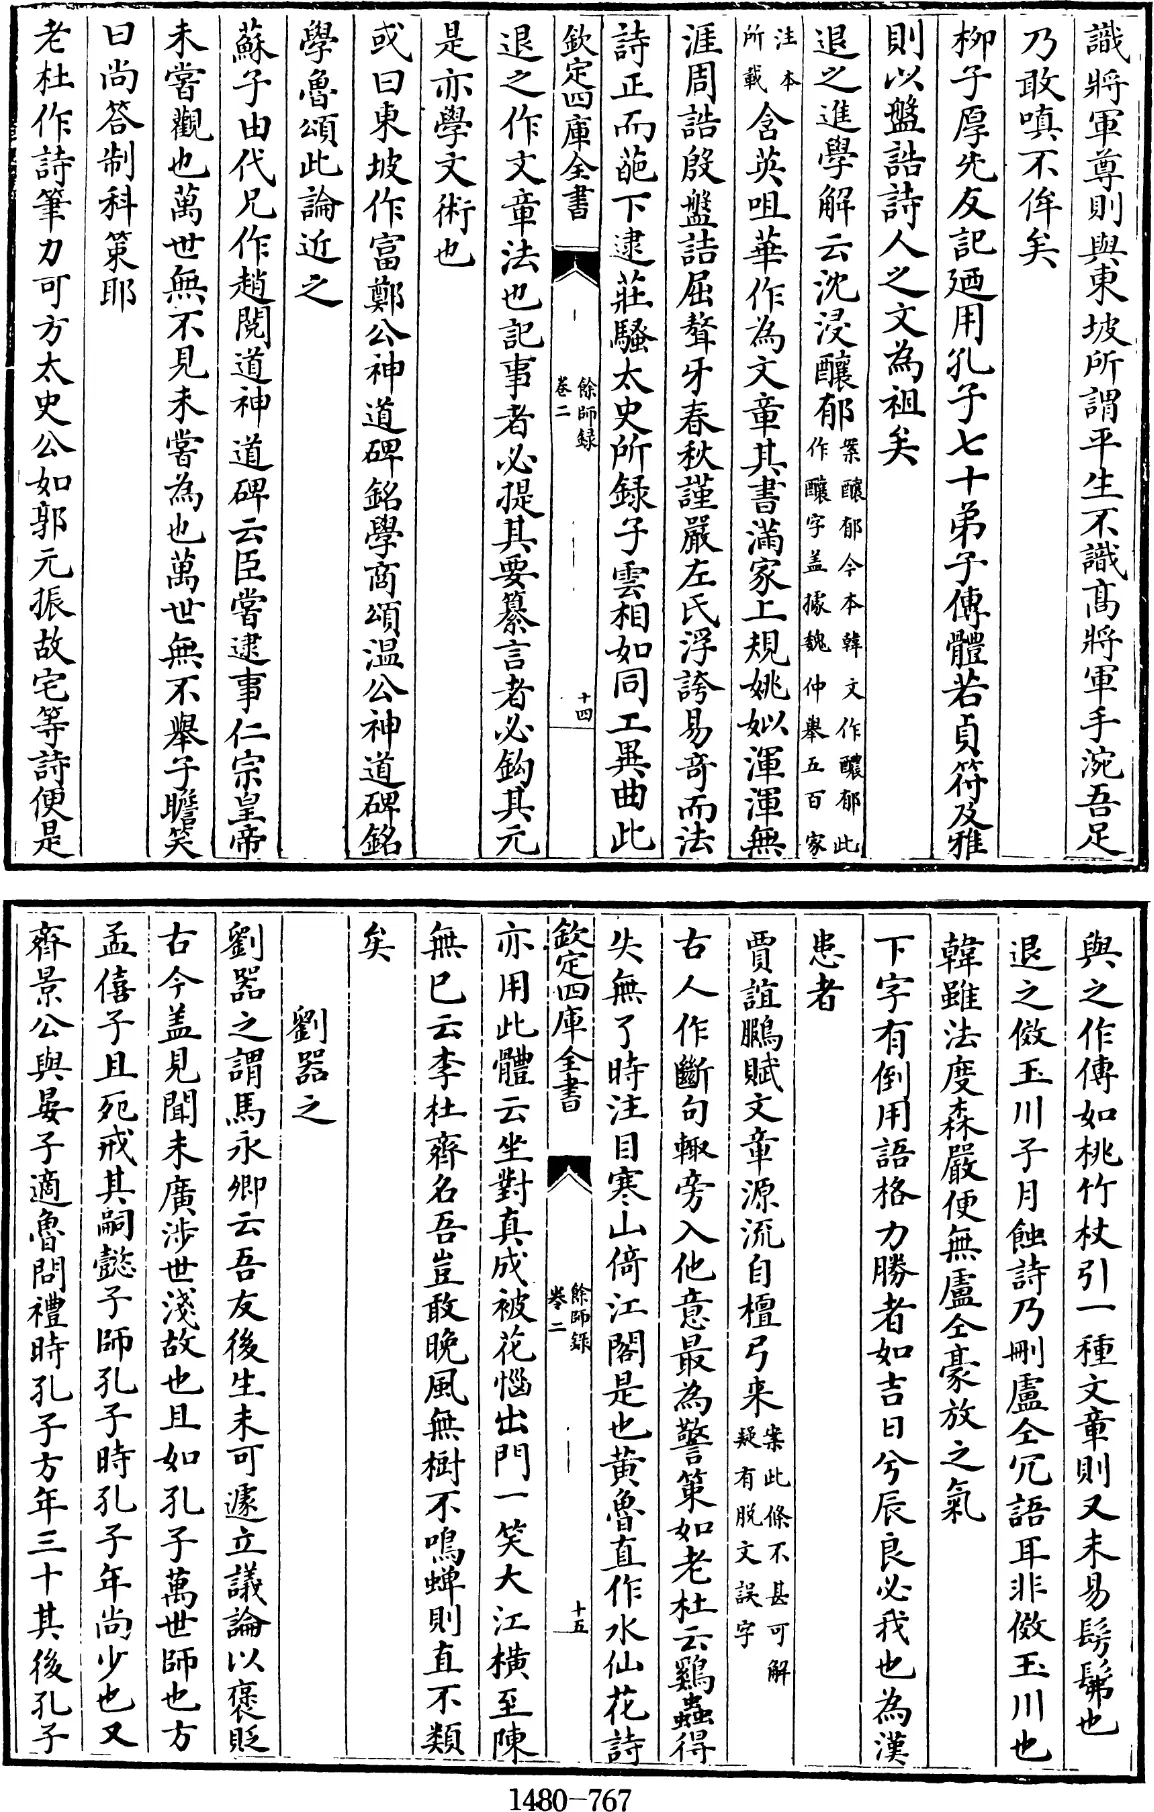 識將軍尊則與東坡所謂平生不識髙將軍手涴吾足
乃敢嗔不侔矣
柳子厚先友記廼用孔子七十弟子傳體若貞符及雅
則以盤誥詩人之文為祖矣
退之進學解云沈浸釀郁案釀郁今本韓文作醲郁此作釀字盖據魏仲舉五百家
注本所載含英咀華作為文章其書滿家上規姚姒渾渾無
涯周誥殷盤詰屈聱牙春秋謹嚴左氏浮誇易竒而法
詩正而葩下逮莊騷太史所録子雲相如同工異曲此
欽定四庫全書 餘師録 卷二 十四
退之作文章法也記事者必提其要纂言者必鈎其元
是亦學文術也
或曰東坡作富鄭公神道碑銘學商頌温公神道碑銘
學魯頌此論近之
蘇子由代兄作趙閱道神道碑云臣嘗逮事仁宗皇帝
未嘗觀也萬世無不見未嘗為也萬世無不舉子瞻笑
曰尚答制科策耶
老杜作詩筆力可方太史公如郭元振故宅等詩便是
與之作傳如桃竹杖引一種文章則又未易髣髴也
退之傚玉川子月蝕詩乃刪盧仝冗語耳非傚玉川也
韓雖法度森嚴便無盧仝豪放之氣
下字有倒用語格力勝者如吉日兮辰良必我也為漢
患者
賈誼鵩賦文章源流自檀弓来案此條不甚可解疑有脱文誤字
古人作斷句輙旁入他意最為警策如老杜云雞蟲得
失無了時注目寒山倚江閣是也黄魯直作水仙花詩
欽定四庫全書 餘師録 卷二 十五
亦用此體云坐對真成被花惱出門一笑大江横至陳
無已云李杜齊名吾豈敢晚風無樹不鳴蟬則直不類
矣
劉器之
劉器之謂馬永卿云吾友後生未可遽立議論以褒貶
古今盖見聞未廣涉世淺故也且如孔子萬世師也方
孟僖子且死戒其嗣懿子師孔子時孔子年尚少也又
齊景公與晏子適魯問禮時孔子方年三十其後孔子
1480-767